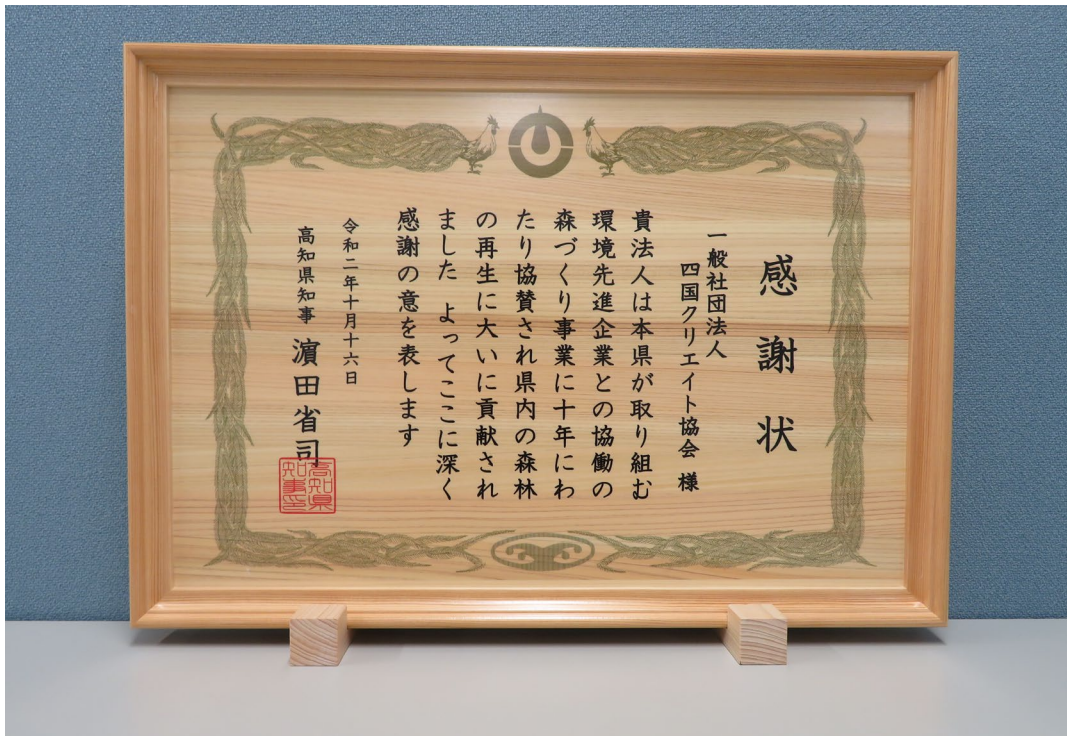 感謝状
一般社団法人
四国クリエイト協会 様
貴法人は本県が取り組む
環境先進企業との協働の
森づくり事業に十年にわ
たり協賛され県内の森林
の再生に大いに貢献され
ました よってここに深く
感謝の意を表します
令和二年十月十六日
高知県知事 濵田省司
高知県
知事印